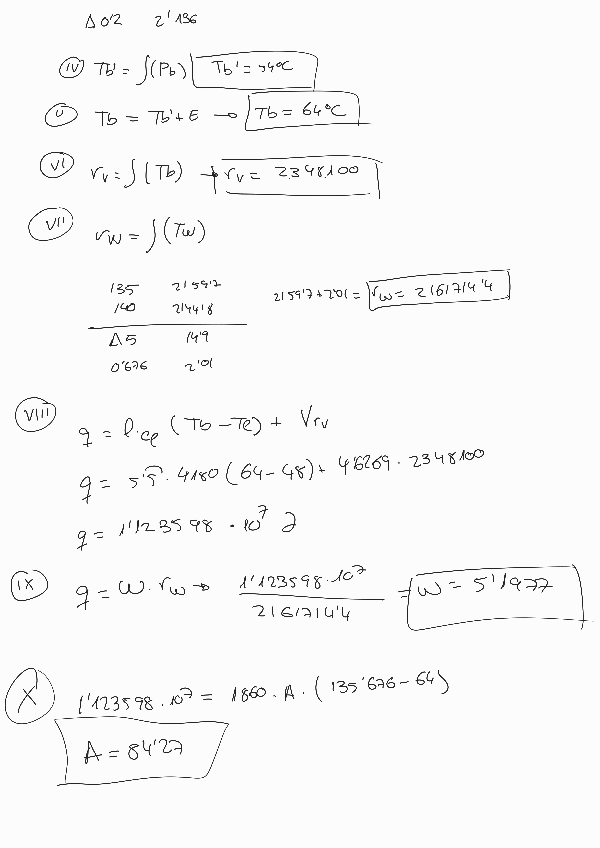 Δ 0'2 2'136
IV Tb' = ∫(Pb) Tb' = 54ºC
V Tb = Tb' + E → Tb = 64ºC
VI rv = ∫(Tb) → rv = 2348100
VII rw = ∫(Tw)
135 2159'7
140 2144'8
2159'7 + 2'01 = rw = 2161714'4
Δ 5 14'9
0'676 2'01
VIII q = l·ce (Tb - Te) + Vrv
q = 5'5 · 4180 (64 - 48) + 4'6269 · 2348100
q = 1'123598 · 10^7 J
IX q = W · rw → 1'123598 · 10^7 / 2161714'4 = W = 5'1977
X 1'123598 · 10^7 = 1860 · A · (135'676 - 64)
A = 84'27